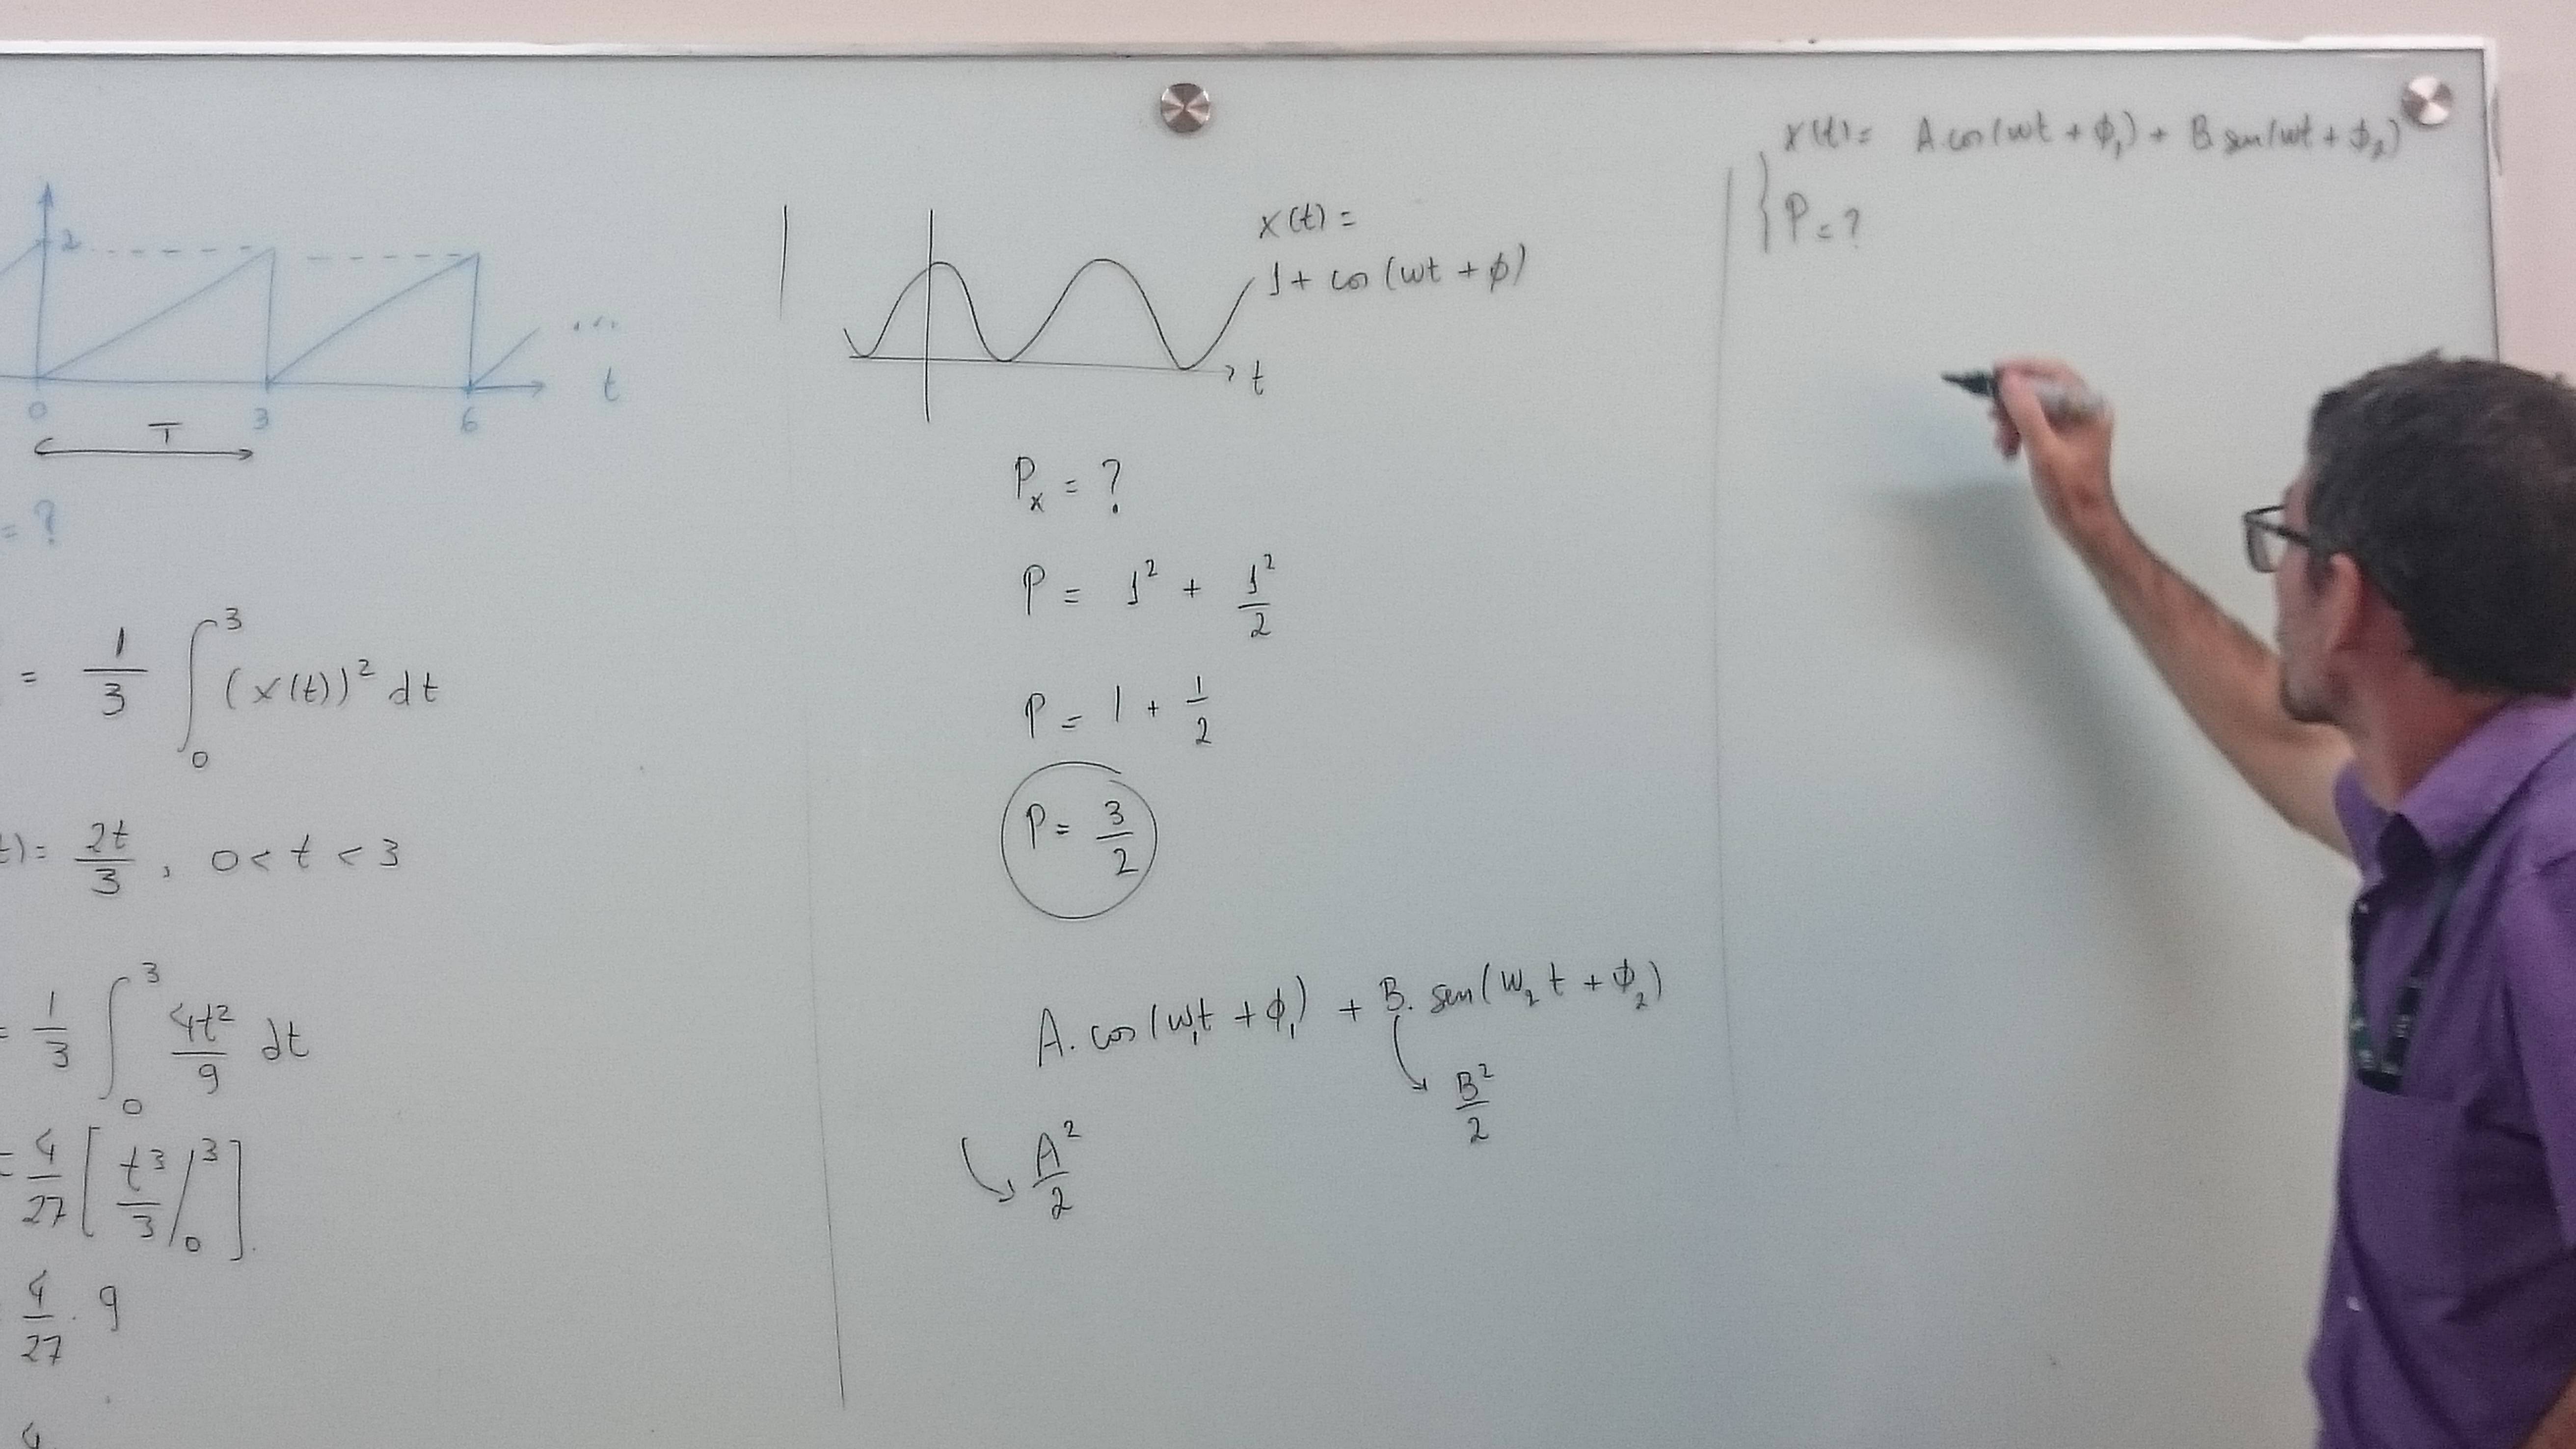 2
...
0 3 6 t
T
= ?
= 1/3 ∫₀³ (x(t))² dt
t) = 2t/3 , 0 < t < 3
= 1/3 ∫₀³ 4t²/9 dt
= 4/27 [ t³/3 /₀³ ]
4/27 . 9
4
x(t) =
1 + cos (wt + φ)
t
Pₓ = ?
P = 1² + 1²/2
P = 1 + 1/2
P = 3/2
A. cos (w₁t + φ₁) + B. sen (w₂t + φ₂)
B²/2
A²/2
x(t) = A cos (wt + φ₁) + B sen (wt + φ₂)
P = ?